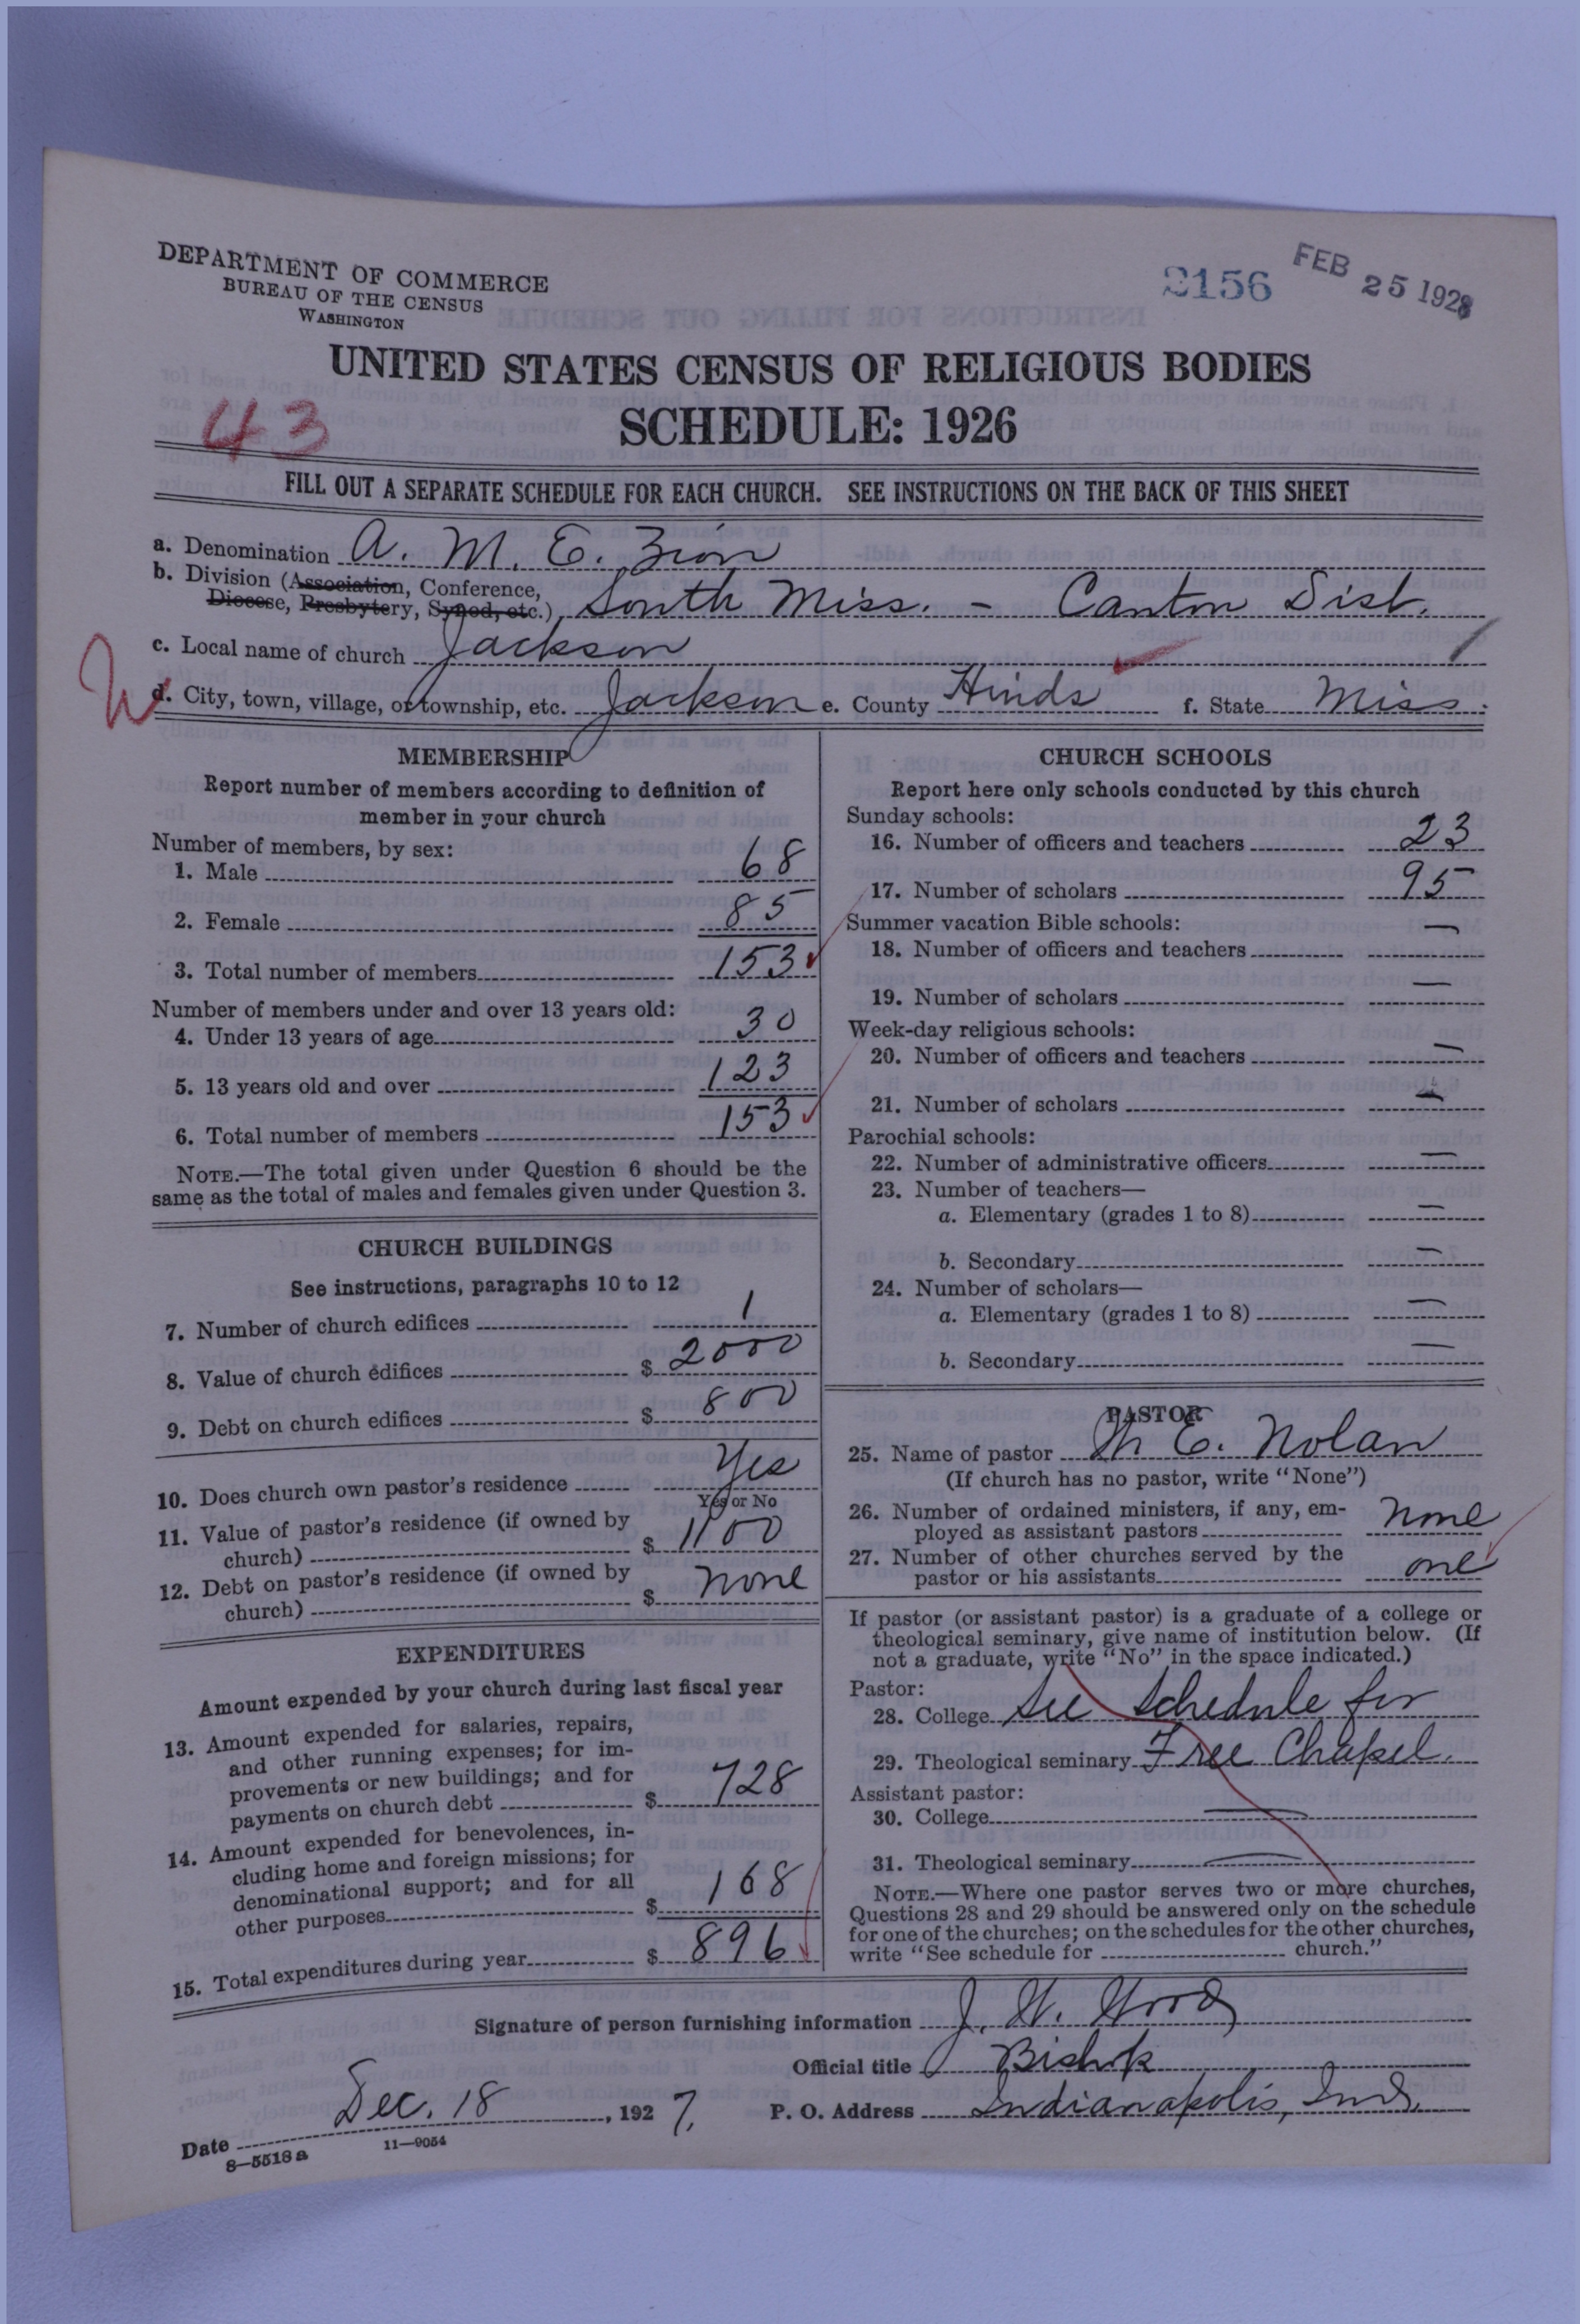 DEPARTMENT OF COMMERCE
BUREAU OF THE CENSUS
WASHINGTON
2156
FEB 25 1928
UNITED STATES CENSUS OF RELIGIOUS BODIES
43
SCHEDULE: 1926
FILL OUT A SEPARATE SCHEDULE FOR EACH CHURCH. SEE INSTRUCTIONS ON THE BACK OF THIS SHEET
a. Denomination A. M. E. Zion
b. Division (Association, Conference,
Diocese, Presbytery, Synod, etc.) South Miss. - Canton Dist.
c. Local name of church Jackson
d. City, town, village, or township, etc. Jackson e. County Hinds f. State Miss.
MEMBERSHIP
Report number of members according to definition of
member in your church
Number of members, by sex:
1. Male 68
2. Female 85
3. Total number of members 153
Number of members under and over 13 years old:
4. Under 13 years of age 30
5. 13 years old and over 123
6. Total number of members 153
NOTE.—The total given under Question 6 should be the
same as the total of males and females given under Question 3.
CHURCH BUILDINGS
See instructions, paragraphs 10 to 12
7. Number of church edifices 1
8. Value of church edifices $ 2000
9. Debt on church edifices $ 800
10. Does church own pastor's residence Yes
Yes or No
11. Value of pastor's residence (if owned by
church) $ 1100
12. Debt on pastor's residence (if owned by
church) $ none
EXPENDITURES
Amount expended by your church during last fiscal year
13. Amount expended for salaries, repairs,
and other running expenses; for im-
provements or new buildings; and for
payments on church debt $ 728
14. Amount expended for benevolences, in-
cluding home and foreign missions; for
denominational support; and for all
other purposes $ 168
15. Total expenditures during year $ 896
CHURCH SCHOOLS
Report here only schools conducted by this church
Sunday schools:
16. Number of officers and teachers 23
17. Number of scholars 95
Summer vacation Bible schools:
18. Number of officers and teachers —
19. Number of scholars —
Week-day religious schools:
20. Number of officers and teachers —
21. Number of scholars —
Parochial schools:
22. Number of administrative officers —
23. Number of teachers—
a. Elementary (grades 1 to 8) —
b. Secondary —
24. Number of scholars—
a. Elementary (grades 1 to 8) —
b. Secondary —
PASTOR
25. Name of pastor E. Nolan
(If church has no pastor, write "None")
26. Number of ordained ministers, if any, em-
ployed as assistant pastors none
27. Number of other churches served by the
pastor or his assistants one
If pastor (or assistant pastor) is a graduate of a college or
theological seminary, give name of institution below. (If
not a graduate, write "No" in the space indicated.)
Pastor:
28. College See Schedule for
29. Theological seminary Free Chapel.
Assistant pastor:
30. College —
31. Theological seminary —
NOTE.—Where one pastor serves two or more churches,
Questions 28 and 29 should be answered only on the schedule
for one of the churches; on the schedules for the other churches,
write "See schedule for church."
Signature of person furnishing information J. W. Wood
Official title Bishop
Date Dec. 18, 1927. P. O. Address Indianapolis, Ind.
8—5518 a 11—9054